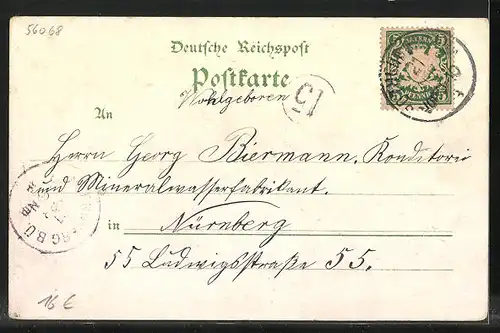 56068
Deutsche Reichspost
Postkarte
Wohlgeboren
15
An
Herrn Georg Biermann, Konditorei
und Mineralwasserfabrikant.
in Nürnberg
55 Ludwigsstraße 55.
16 €